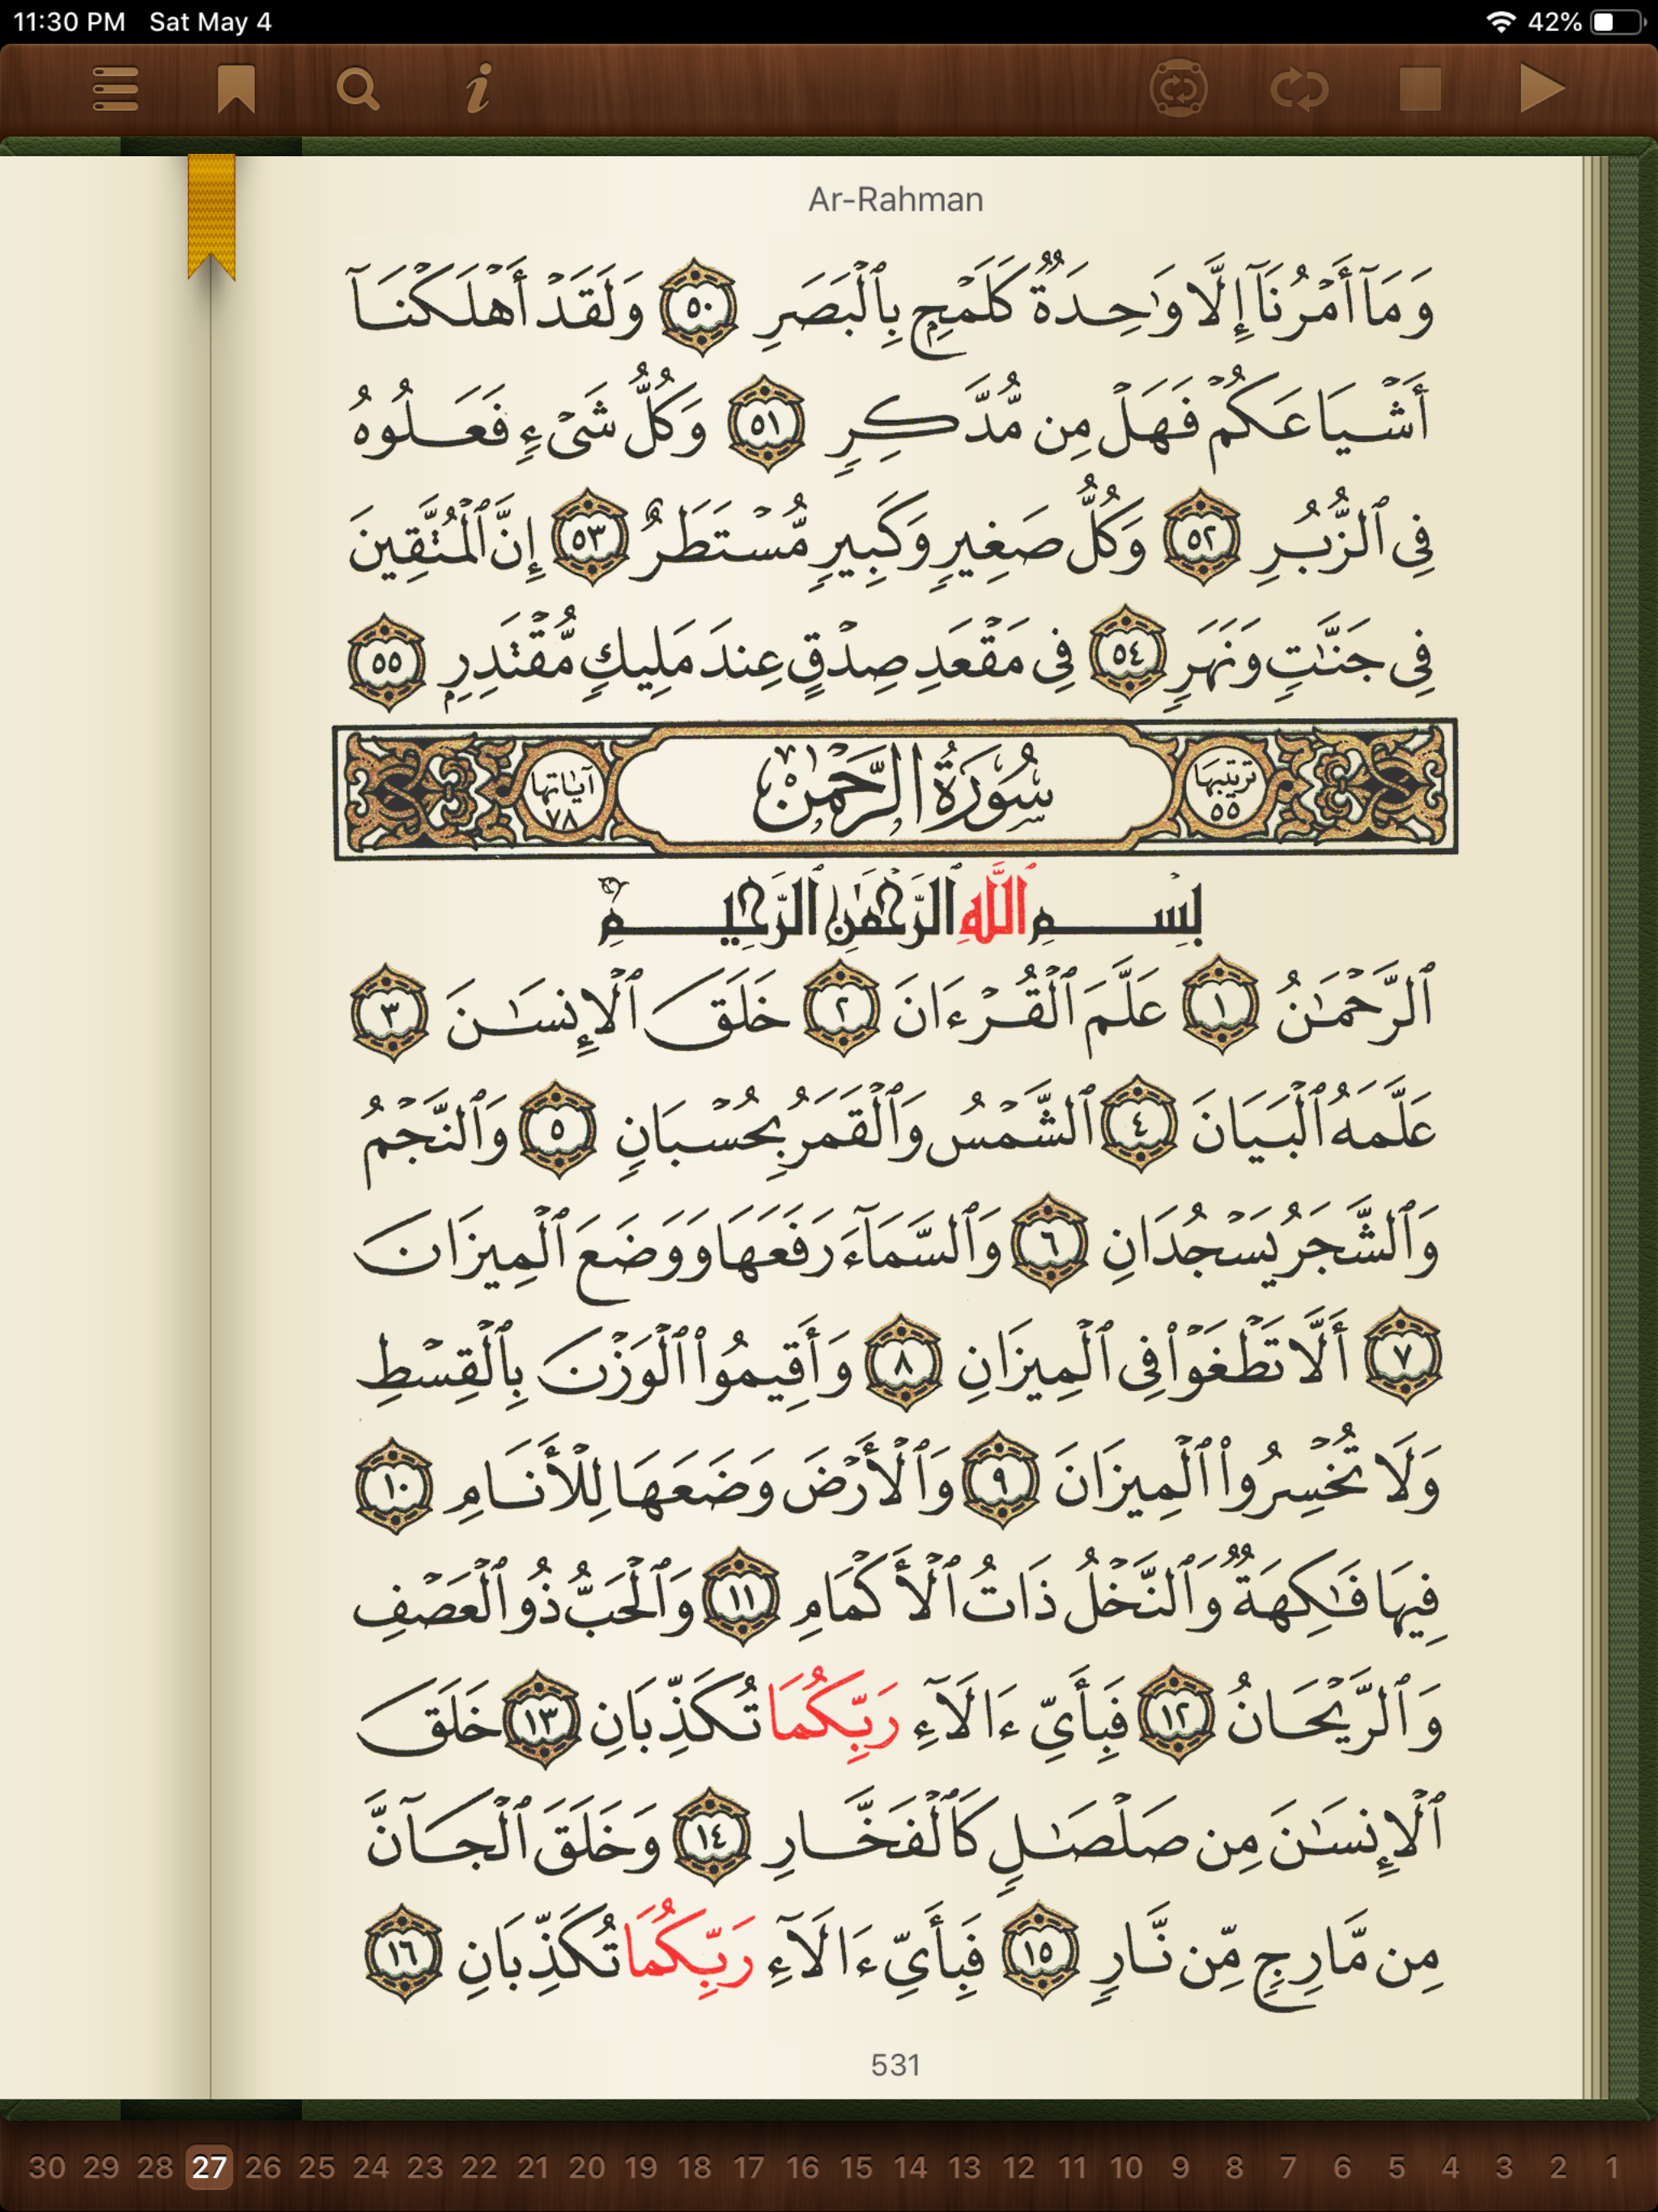 11:30 PM Sat May 4 42%
Ar-Rahman
وَمَآ أَمْرُنَآ إِلَّا وَٰحِدَةٌ كَلَمْحٍۭ بِٱلْبَصَرِ ٥٠ وَلَقَدْ أَهْلَكْنَآ
أَشْيَاعَكُمْ فَهَلْ مِن مُّدَّكِرٍ ٥١ وَكُلُّ شَىْءٍ فَعَلُوهُ
فِى ٱلزُّبُرِ ٥٢ وَكُلُّ صَغِيرٍ وَكَبِيرٍ مُّسْتَطَرٌ ٥٣ إِنَّ ٱلْمُتَّقِينَ
فِى جَنَّٰتٍ وَنَهَرٍ ٥٤ فِى مَقْعَدِ صِدْقٍ عِندَ مَلِيكٍ مُّقْتَدِرٍۭ ٥٥
ترتيبها ٥٥ سُورَةُ الرَّحْمٰن آياتها ٧٨
بِسْمِ ٱللَّهِ ٱلرَّحْمَٰنِ ٱلرَّحِيمِ
ٱلرَّحْمَٰنُ ١ عَلَّمَ ٱلْقُرْءَانَ ٢ خَلَقَ ٱلْإِنسَٰنَ ٣
عَلَّمَهُ ٱلْبَيَانَ ٤ ٱلشَّمْسُ وَٱلْقَمَرُ بِحُسْبَانٍ ٥ وَٱلنَّجْمُ
وَٱلشَّجَرُ يَسْجُدَانِ ٦ وَٱلسَّمَآءَ رَفَعَهَا وَوَضَعَ ٱلْمِيزَانَ
٧ أَلَّا تَطْغَوْا۟ فِى ٱلْمِيزَانِ ٨ وَأَقِيمُوا۟ ٱلْوَزْنَ بِٱلْقِسْطِ
وَلَا تُخْسِرُوا۟ ٱلْمِيزَانَ ٩ وَٱلْأَرْضَ وَضَعَهَا لِلْأَنَامِ ١٠
فِيهَا فَٰكِهَةٌ وَٱلنَّخْلُ ذَاتُ ٱلْأَكْمَامِ ١١ وَٱلْحَبُّ ذُو ٱلْعَصْفِ
وَٱلرَّيْحَانُ ١٢ فَبِأَىِّ ءَالَآءِ رَبِّكُمَا تُكَذِّبَانِ ١٣ خَلَقَ
ٱلْإِنسَٰنَ مِن صَلْصَٰلٍ كَٱلْفَخَّارِ ١٤ وَخَلَقَ ٱلْجَآنَّ
مِن مَّارِجٍ مِّن نَّارٍ ١٥ فَبِأَىِّ ءَالَآءِ رَبِّكُمَا تُكَذِّبَانِ ١٦
531
30 29 28 27 26 25 24 23 22 21 20 19 18 17 16 15 14 13 12 11 10 9 8 7 6 5 4 3 2 1